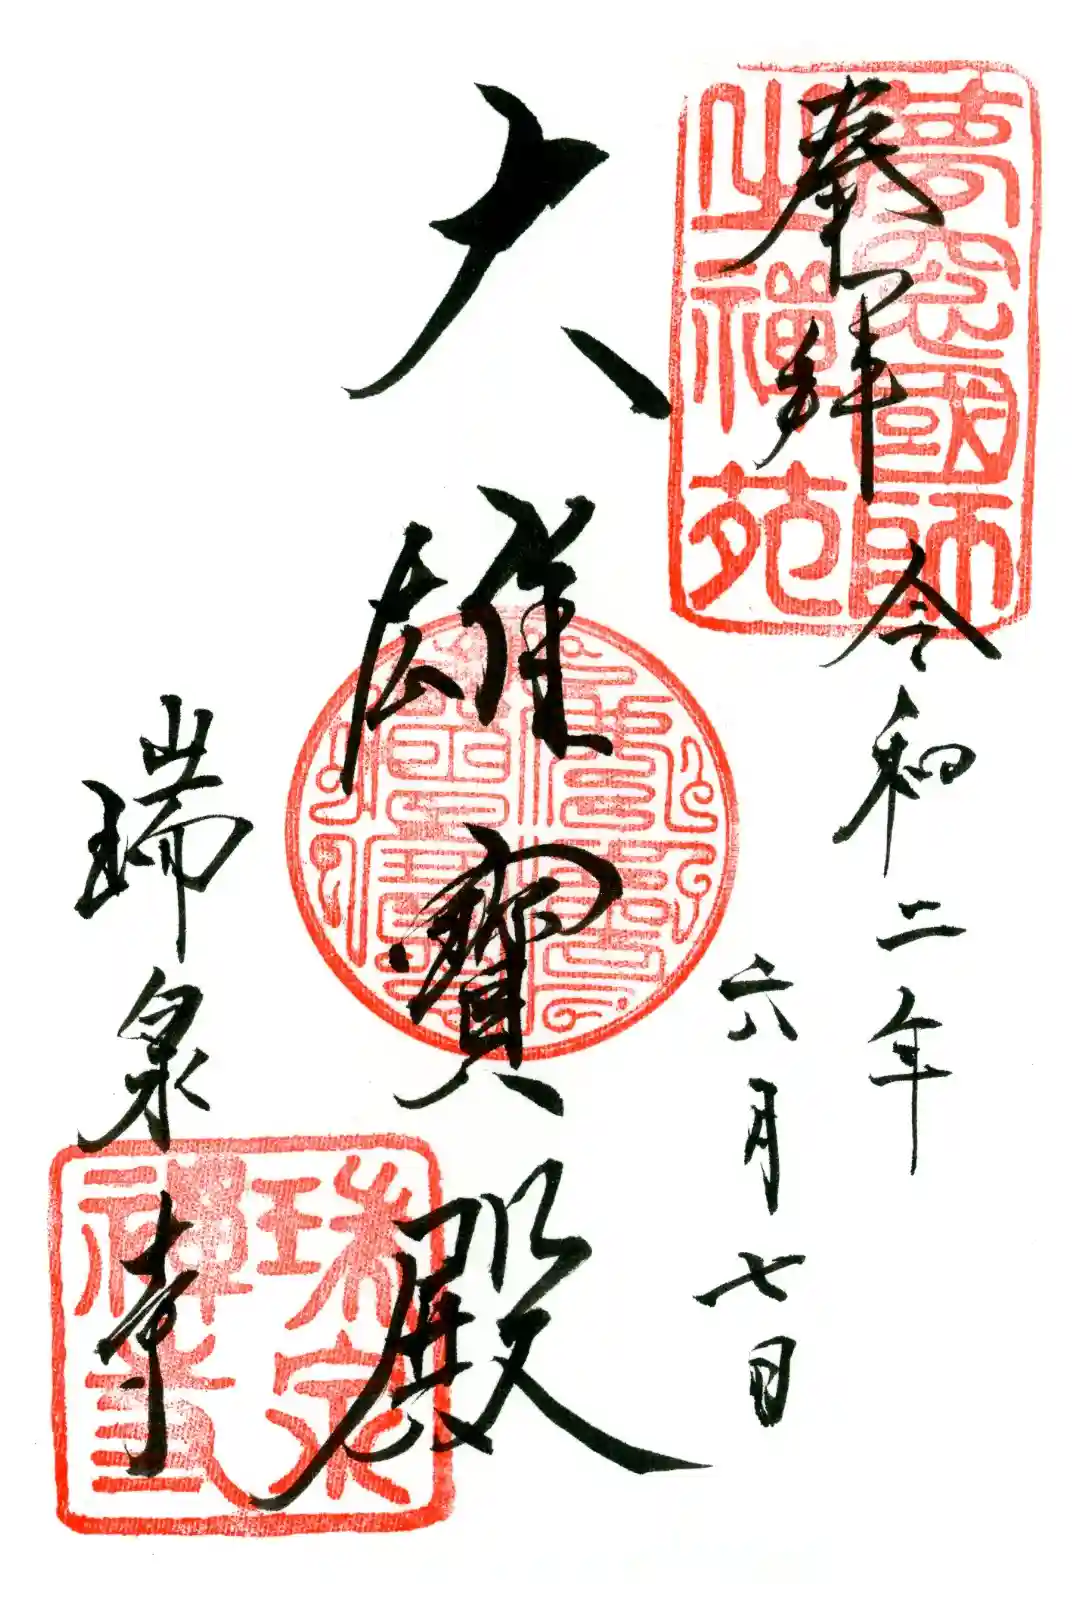 奉拝
夢窓國師
之禪苑
令和二年
六月七日
大雄寶殿
瑞泉寺
瑞泉
禅寺